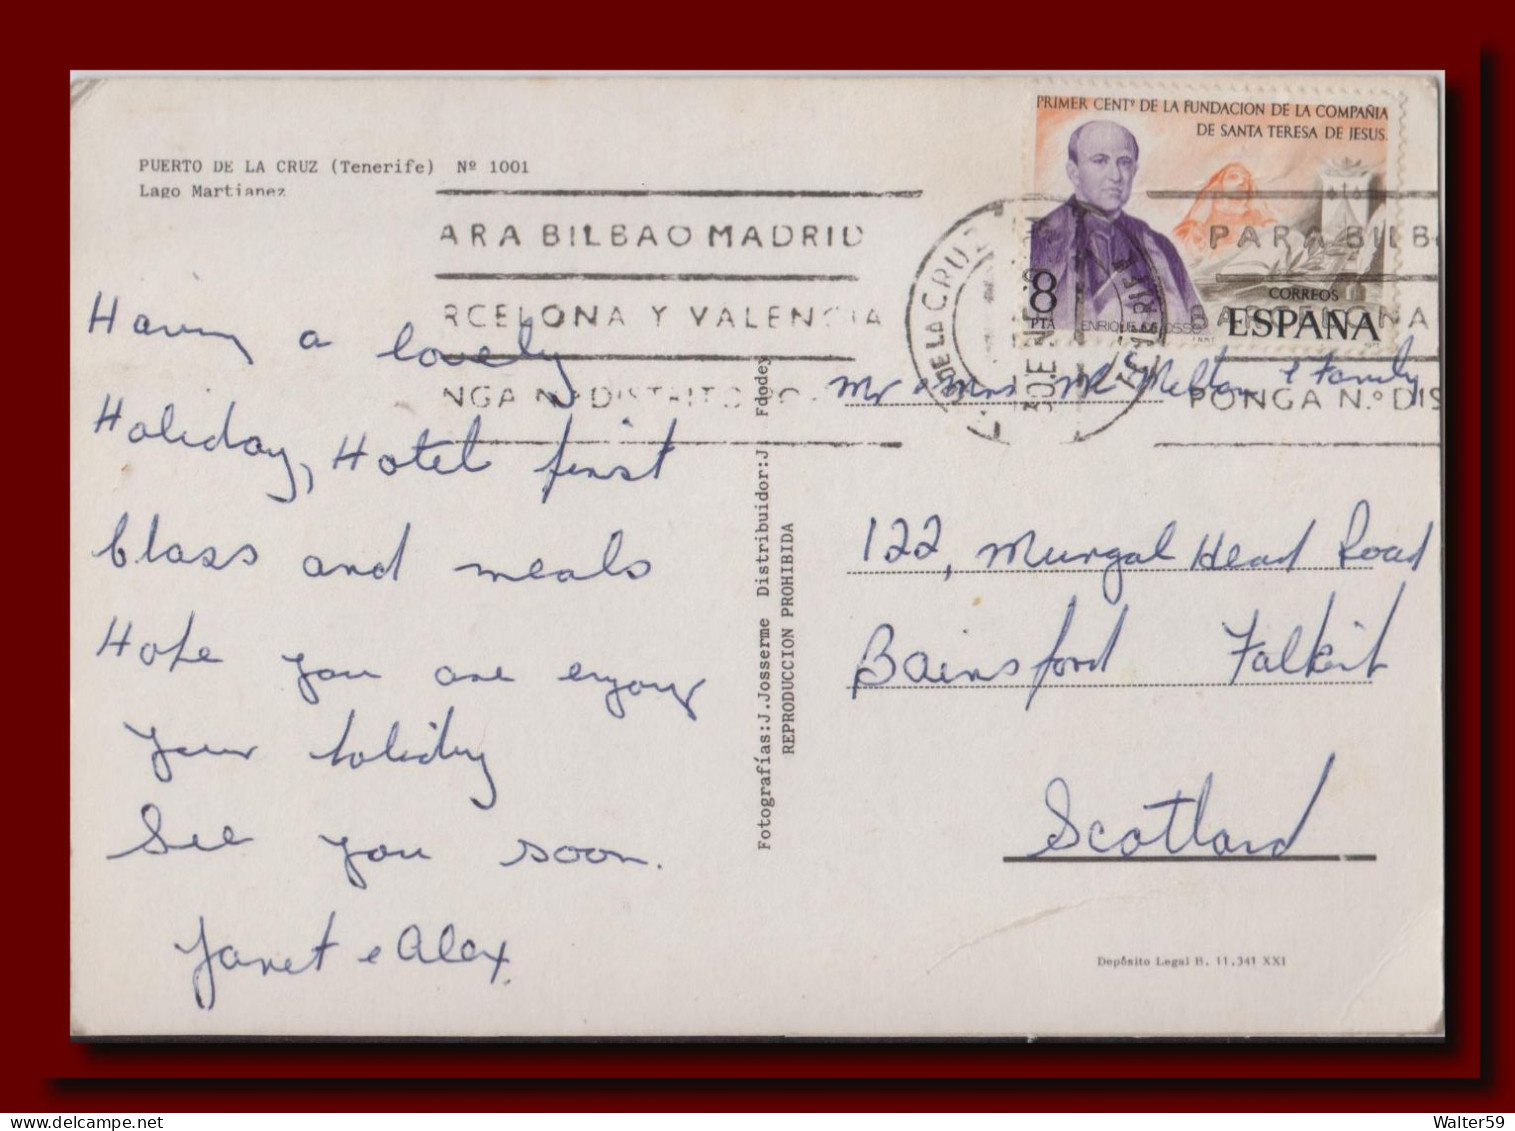 PUERTO DE LA CRUZ (Tenerife) Nº 1001
Lago Martianez
ARA BILBAO MADRID
RCELONA Y VALENCIA
NGA N.º DISTRITO PO
Having a lovely
Holiday, Hotel first
Class and meals
Hope you are enjoyg
your holiday
See you soon.
Janet & Alex.
Fotografías:J.Josserme Distribuidor:J Fdodey
REPRODUCCION PROHIBIDA
PRIMER CENTº DE LA FUNDACION DE LA COMPAÑIA
DE SANTA TERESA DE JESUS.
8
PTA
ENRIQUE DE OSSO
CORREOS
ESPAÑA
DE LA CRUZ
30 ENE
PARA BILB
BARCELONA
PONGA N.º DIS
Mr & Mrs Melton & Family
122, Mungal Head Road
Bainsford Falkirk
Scotland
Depósito Legal B. 11.341 XXI
Walter59